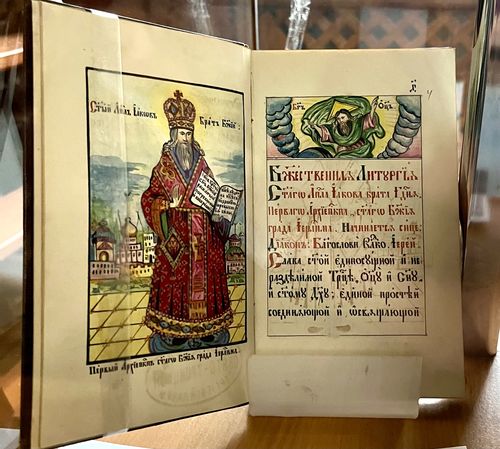 Стый Апл Іаковъ
Братъ Бжій:
Первый Архіепкпъ стагѡ Бжіѧ града Іерлима.
Бгъ Оцъ
Бжественнаѧ Литꙋргіѧ
Стагѡ Апла Іакова брата Гднѧ
Перваго Архіепкпа стагѡ Бжіѧ
града Іерлима. Начинаетъ сице:
Діаконъ: Благослови Влко. Іерей:
Слава стой единосꙋщной и не
раздѣлимой Трцѣ, Оцꙋ и Снꙋ
и стомꙋ Дхꙋ; единой простѣй
соединѧющой и ѡсвѧщающой